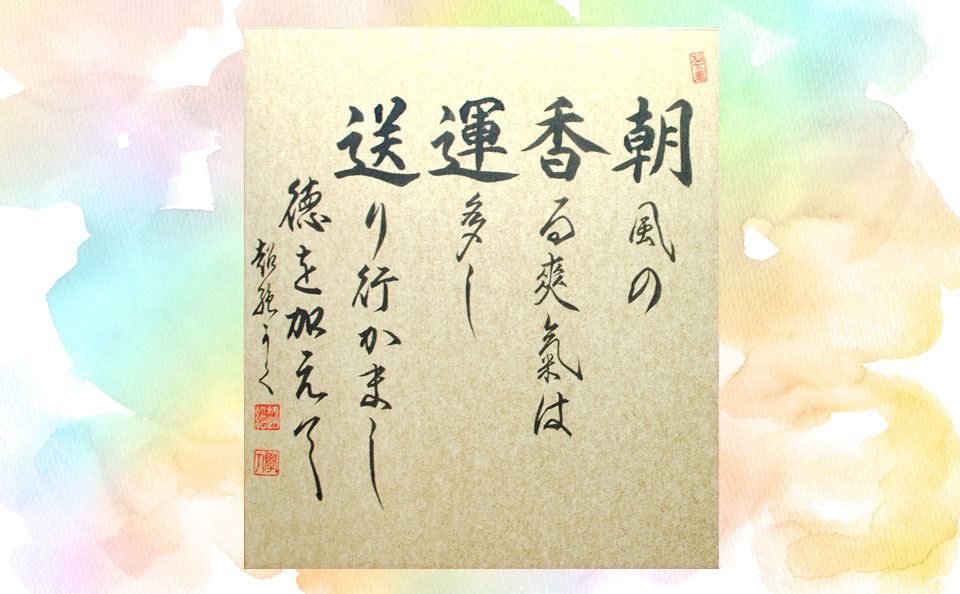 朝風の
香る爽氣は
運多し
送り行かまし
徳を加えて